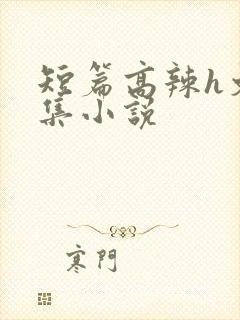 短篇高辣h
集小说
寒門